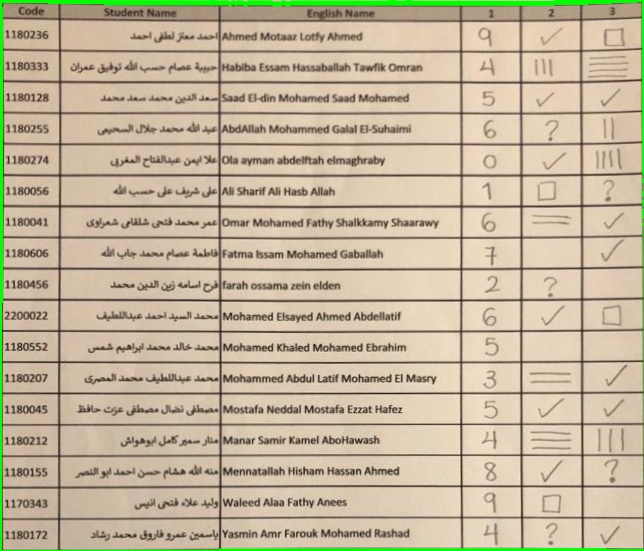 Code Student Name English Name 1 2 3
1180236 احمد معتز لطفى احمد Ahmed Motaaz Lotfy Ahmed 9 ✓ □
1180333 حبيبة عصام حسب الله توفيق عمران Habiba Essam Hassaballah Tawfik Omran 4 ||| ≡
1180128 سعد الدين محمد سعد محمد Saad El-din Mohamed Saad Mohamed 5 ✓ ✓
1180255 عبد الله محمد جلال السحيمى AbdAllah Mohammed Galal El-Suhaimi 6 ? ||
1180274 علا ايمن عبدالفتاح المغربى Ola ayman abdelftah elmaghraby 0 ✓ ||||
1180056 على شريف على حسب الله Ali Sharif Ali Hasb Allah 1 □ ?
1180041 عمر محمد فتحى شلقامى شعراوى Omar Mohamed Fathy Shalkkamy Shaarawy 6 = ✓
1180606 فاطمة عصام محمد جاب الله Fatma Issam Mohamed Gaballah 7 ✓
1180456 فرح اسامه زين الدين محمد farah ossama zein elden 2 ?
2200022 محمد السيد احمد عبداللطيف Mohamed Elsayed Ahmed Abdellatif 6 ✓ □
1180552 محمد خالد محمد ابراهيم شمس Mohamed Khaled Mohamed Ebrahim 5
1180207 محمد عبداللطيف محمد المصرى Mohammed Abdul Latif Mohamed El Masry 3 = ✓
1180045 مصطفى نضال مصطفى عزت حافظ Mostafa Neddal Mostafa Ezzat Hafez 5 ✓ ✓
1180212 منار سمير كامل ابوهواش Manar Samir Kamel AboHawash 4 ≡ |||
1180155 منه الله هشام حسن احمد ابو النصر Mennatallah Hisham Hassan Ahmed 8 ✓ ?
1170343 وليد علاء فتحى انيس Waleed Alaa Fathy Anees 9 □
1180172 ياسمين عمرو فاروق محمد رشاد Yasmin Amr Farouk Mohamed Rashad 4 ? ✓